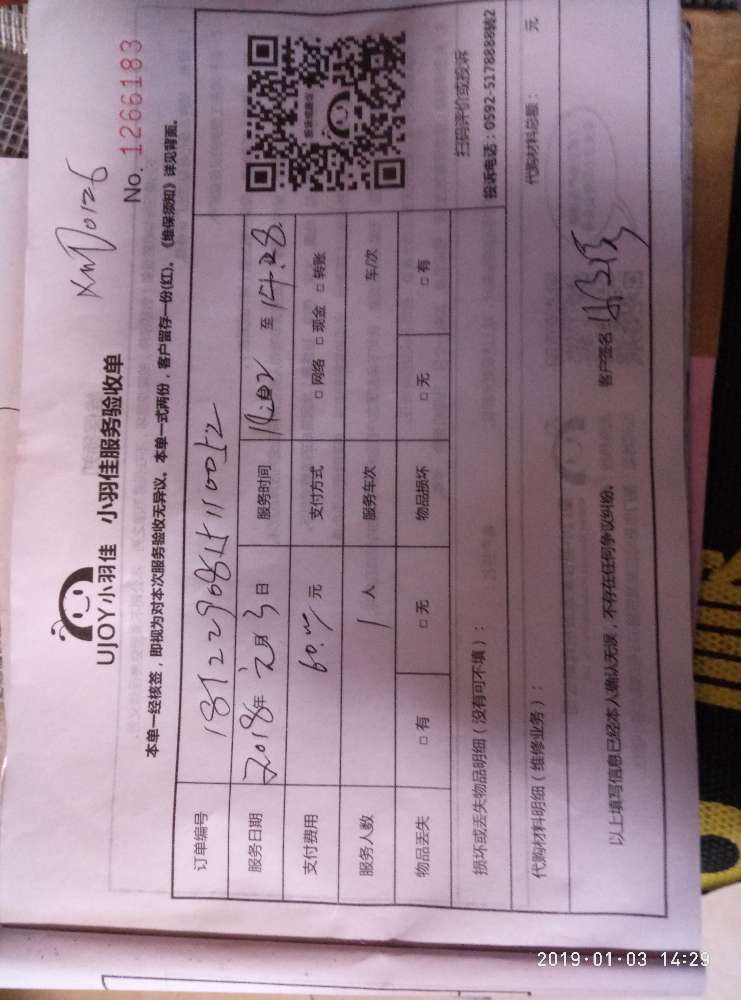 XM70126
UJOY小羽佳 小羽佳服务验收单
No. 1266183
本单一经核签，即视为对本次服务验收无异议。本单一式两份，客户留存一份(红)。《维保须知》详见背面。
订单编号
服务日期 2018年元月3日 服务时间 14:02 至 14:28
支付费用 60.00 元 支付方式 □ 网络 □ 现金 □ 转账
服务人数 1 人 服务车次 车/次
物品丢失 □ 有 □ 无 物品损坏 □ 无 □ 有
扫码评价或投诉
投诉电话：0592-5178888转2
损坏或丢失物品明细（没有可不填）：
代购材料明细（维修业务）：
代购材料总额： 元
以上填写信息已经本人确认无误，不存在任何争议纠纷。 客户签名：
2019-01-03 14:29